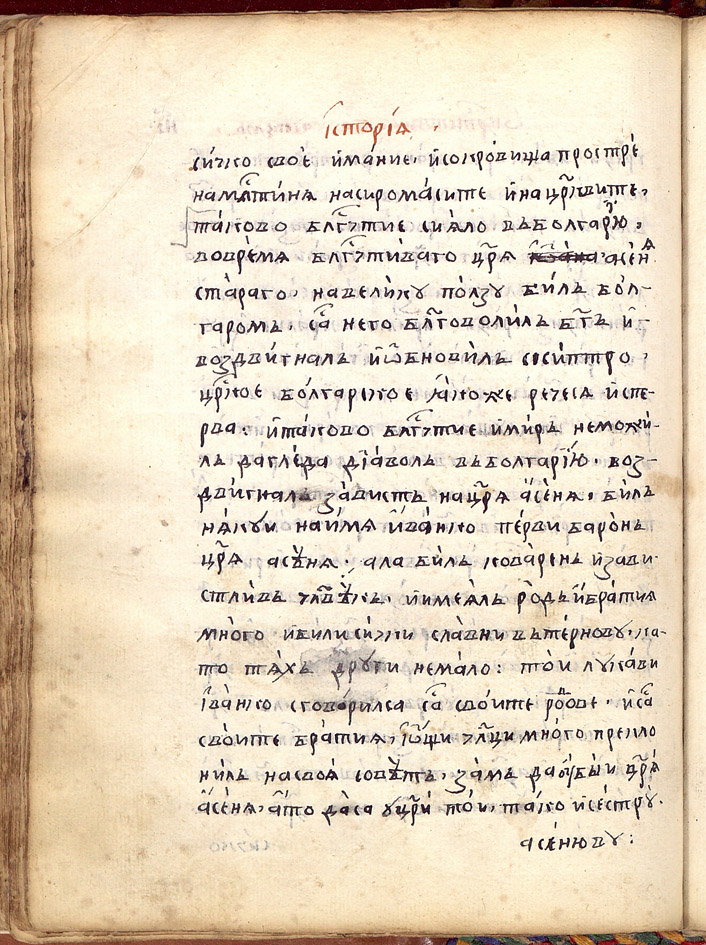 їсторїа
си́чко своѐ и҆ма́ние, и҆сокро́вища прострѐ
намл҃тинѧ насирома́сите и҆нацр҃квите,
та́ково бл҃гоч҃тие сиѧ́ло въболга́рїю,
вовре́мѧ бл҃гоч҃ти́ваго цр҃ѧ асе́нѧ
ста́раго, навели́ку по́лзу би́лъ бо́л-
гаромъ, са̀ него бл҃говоли́лъ бг҃ъ и҆
воздви́гналъ и҆ѡбнови́лъ скиптро,
цр҃кое болгарское ꙗ҆́коже речесѧ и҆спе-
рва: и҆та́ково бл҃гоч҃тие и҆ми́ръ немо́жи-
лъ дагле́да дїа́волъ въболга́рїю, воз-
дви́гналъ за́вистъ нацр҃ѧ а҆се́нѧ, би́лъ
нѧ́куи наи́мѧ и҆ва́нко пе́рви баро́нъ
цр҃ѧ асѣ́нѧ, ала би́лъ кова́ренъ и҆зави
стли́въ чл҃вѣ́къ, и҆име́ѧлъ ро́дъ и҆бра́тиѧ
мно́го и҆били си́чки сла́вни въте́рнову, ка-
то тѧ́хъ дру́ги нема́ло: то́и лука́ви
і҆ва́нко сговори́лса са̀ свои́те ро́дове, и҆са̀
свои́те бра́тиѧ, и҆ѡ́щи чл҃ци мно́го прекло
ни́лъ насвоѧ̀ совѣ́тъ, за́мъ даѹ҆би́и цр҃ѧ̀
а҆се́нѧ, а҆то да́са уцр҃и то́и, та́ко и҆сестру̀
асе́нюву: